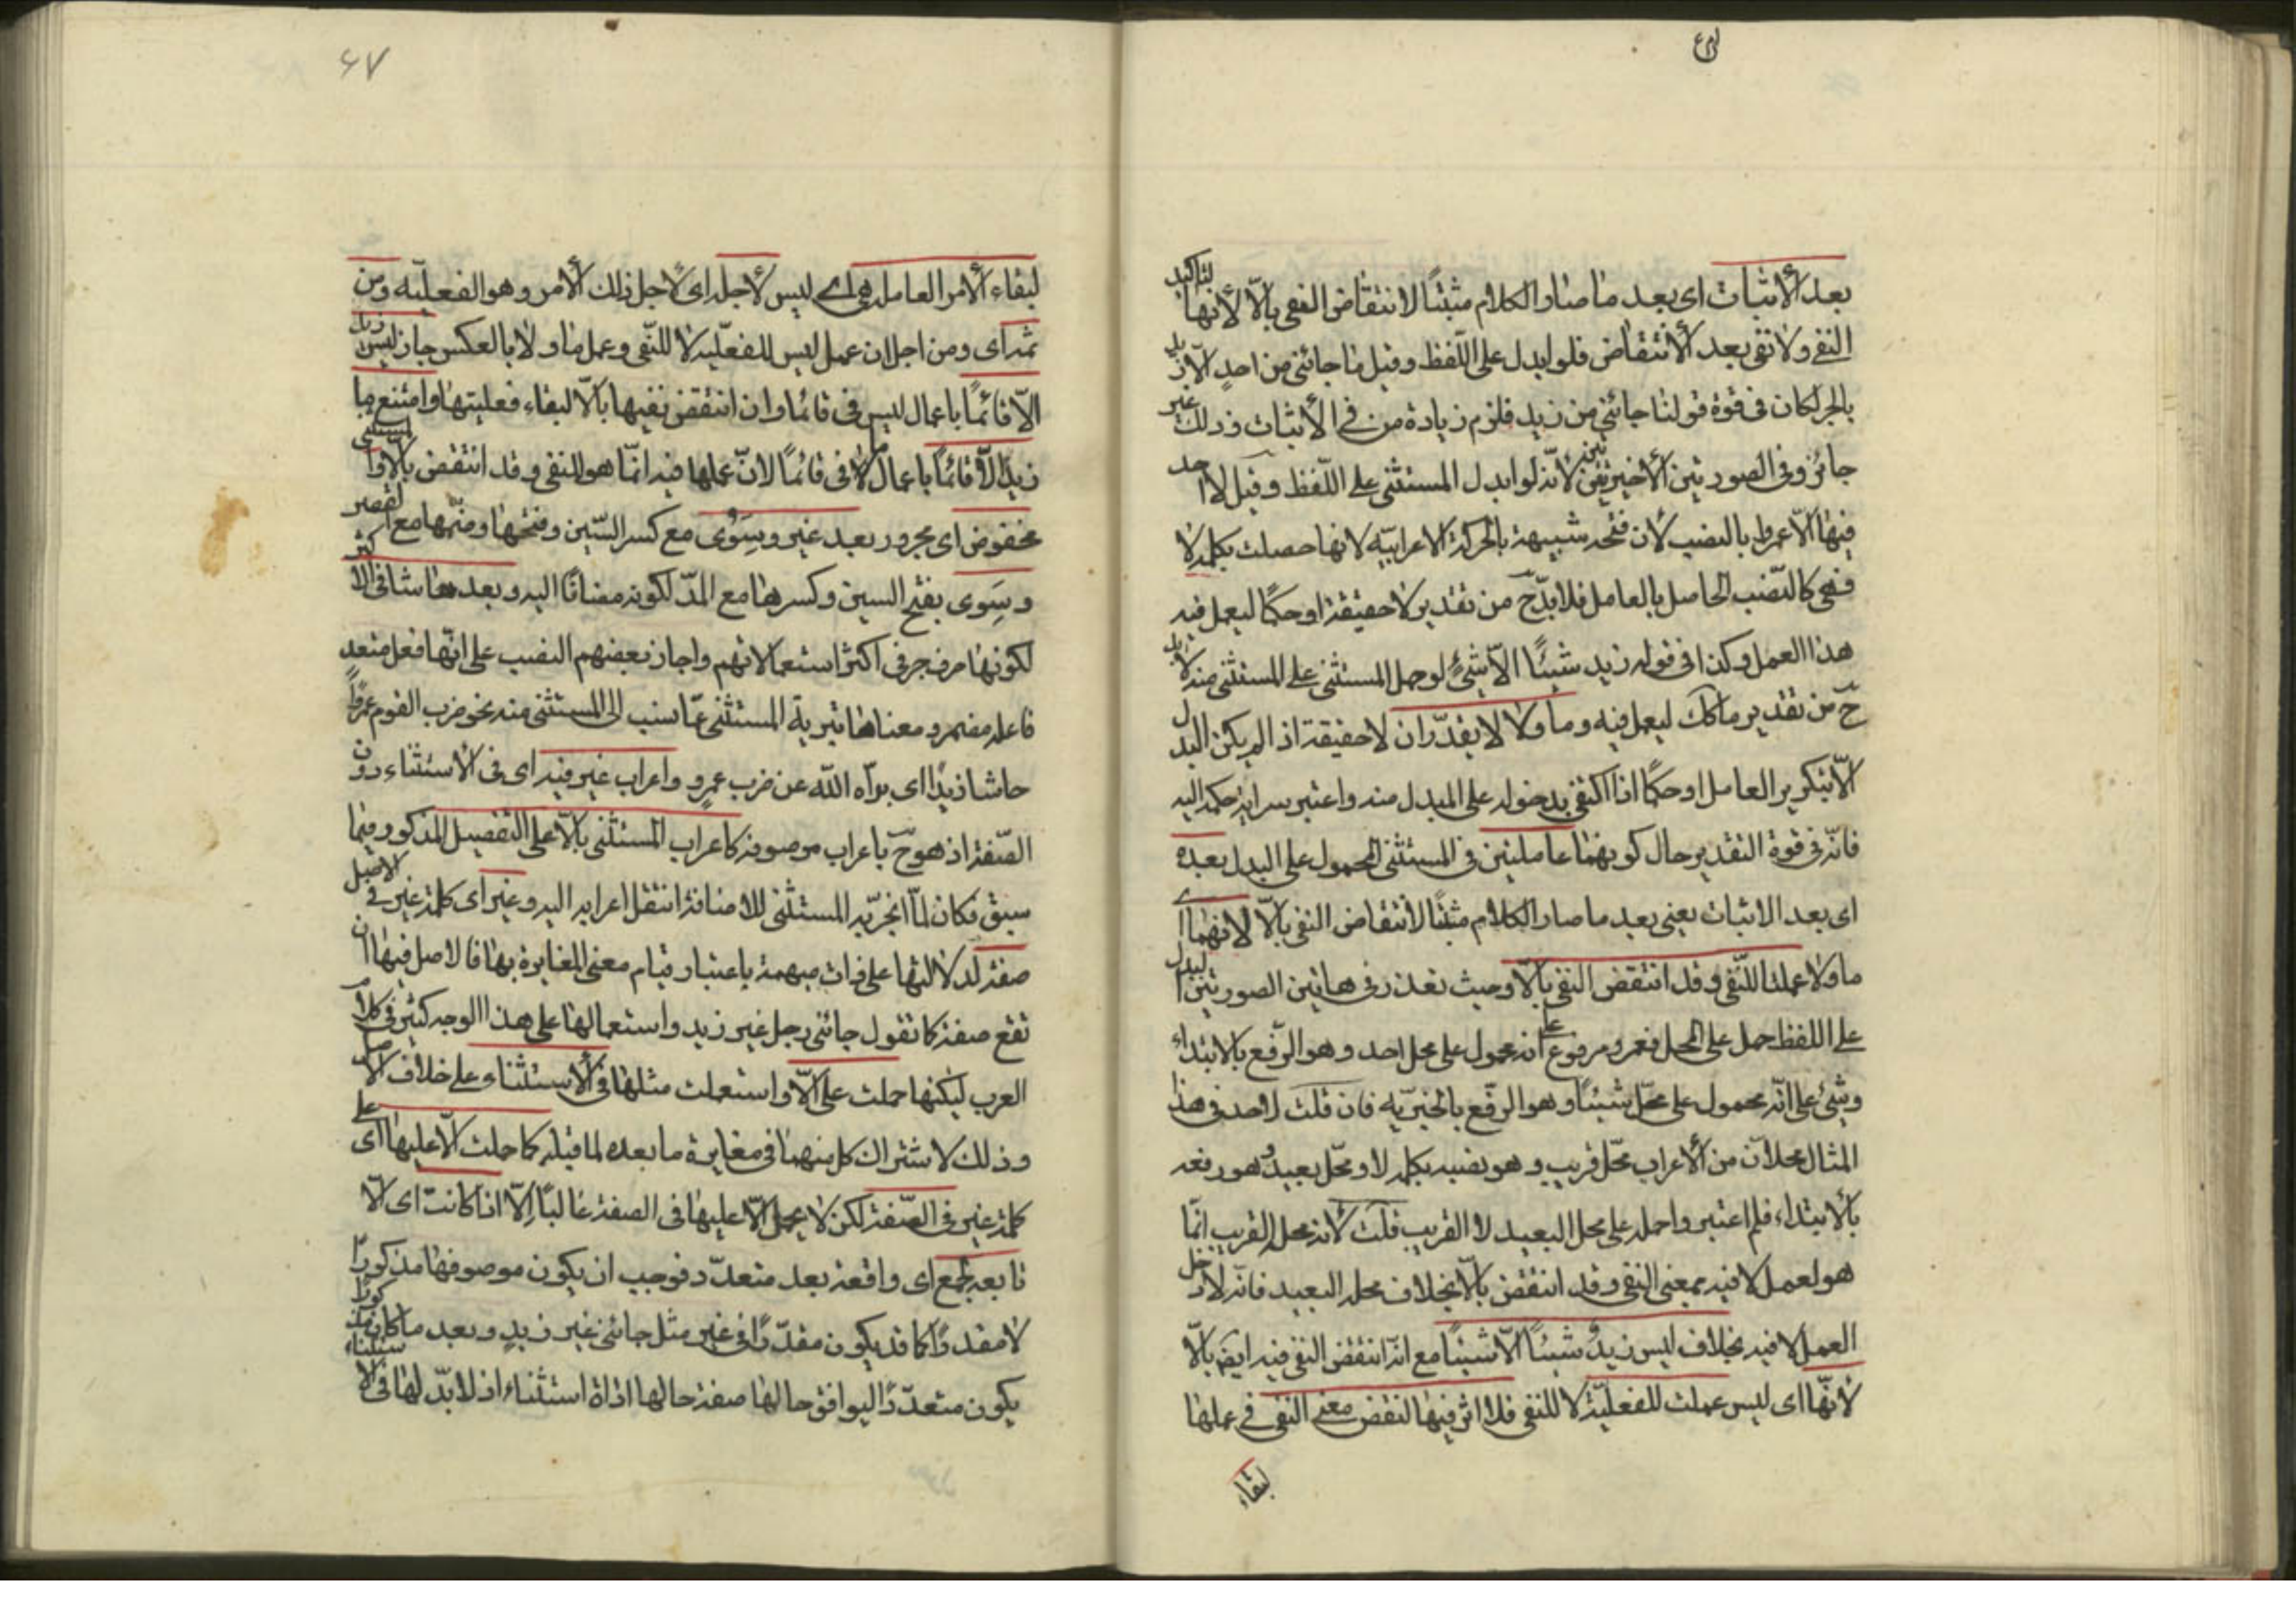 بعد الاثبات اى بعد ما صار الكلام مثبتًا لانتقاض النفى بالّا لأنها لتاكيد
النفى ولا نفى بعد الانتقاض فلو ابدل على اللّفظ وقيل ما جائنى من احدٍ الّا زيد
بالجر لكان فى قوة قولنا جائنى من زيد فلزم زيادة من فى الأثبات وذلك غير
جائز وفى الصورتين الأخيرتين لأنّه لو ابدل المستثنى على اللّفظ وقيل لا احد
فيها الّا عمروا بالنصب لان فتحه شبيهة بالحركة الاعرابيّه لانها حصلت بكلمة لا
فهى كالنّصب الحاصل بالعامل فلا بدّ ح من تقدير لا حقيقة او حكمًا ليعمل فيه
هذا العمل وكذا فى قوله زيد شيئًا الّا شىٔ لو حمل المستثنى على المستثنى منه لا بد
ح من تقدير ما كك ليعمل فيه وما ولا لا يقدّران لا حقيقة اذا لم يكن البدل
الّا بتكرير العامل او حكمًا اذا اكتفى بدخوله على المبدل منه واعتبر سراية حكمه اليه
فانّه فى قوة التقدير حال كونهما عاملتين فى المستثنى المحمول على البدل بعده
اى بعد الاثبات يعنى بعد ما صار الكلام مثبتًا لانتقاض النفى بالّا لانهما اى
ما ولا عملتا للنّفى وقد انتقض النفى بالّا وحيث تعذر فى هاتين الصورتين البدل
على اللفظ حمل على المحل فعمرو مرفوع على انه محمول على محل احد وهو الرّفع بالابتداء
وشئ على انّه محمول على محلّ شيئًا وهو الرفع بالخبريّه فان قلت لاحد فى هذا
المثال محلان من الأعراب محلّ قريب وهو نصبه بكلمه لا ومحلّ بعيد وهو رفعه
بالأبتداء فلم اعتبر واحمله على محل البعيد لا القريب قلت لأنه محل القريب انّما
هو لعمل لا فيه بمعنى النفى وقد انتقض بالّا بخلاف محله البعيد فانّه لا دخل
العمل لا فيه بخلاف ليس زيدٌ شيئًا الّا شيئًا مع انه انتقض النفى فيه ايضً بالّا
لأنّها اى ليس عملت للفعليّة لا للنفى فلا اثر فيها لنقض معنى النفى فى عملها
لبقاء
۶۷
لبقاء الأمر العامله هى اى ليس لأجله اى لأجل ذلك الأمر وهو الفعليّه ومن
ثمه اى ومن اجل ان عمل ليس للفعليّه لا للنّفى وعمل ما ولا بالعكس جاز ليس زيد
الّا قائمًا باعمال ليس فى قائما وان انتقض نفيها بالّا لبقاء فعليتها وامتنع ما
زيد الّا قائمًا باعمال ما فى قائمًا لانّ عملها فيه انّما هو للنفى وقد انتقض بالّا والمستثنى
مخفوض اى مجرور بعد غير وسِوُى مع كسر السّين وفتحها وضمّها مع القصر
وسِوى بفتح السين وكسرها مع المدّ لكونه مضافًا اليه وبعد حاشا فى الاكثر
لكونها حرف جر فى اكثر استعمالاتهم واجاز بعضهم النصب على انّها فعل متعد
فاعله مضمر ومعناها تبرية المستثنى عمّا نسب الى المستثنى منه نحو ضرب القوم عمروًا
حاشا زيدًا اى برّاه اللّه عن ضرب عمرو واعراب غير فيه اى فى الاستثناء دون
الصّفة اذ هو ح باعراب موصوفه كاعراب المستثنى بالّا على التفصيل المذكور فيما
سبق فكان لمّا انجرّ به المستثنى للاضافة انتقل اعرابه اليه وغير اى كلمة غير فى الاصل
صفة لدلالتها على ذات مبهمة باعتبار قيام معنى المغايرة بها فالاصل فيها ان
تقع صفة كما تقول جائنى رجل غير زيد واستعمالها على هذا الوجه كثير فى كلام
العرب ليكنها حملت على الّا واستعملت مثلها فى الأستثناء على خلاف الاصل
وذلك لاشتراك كل منهما فى مغايرة ما بعده لما قبله كما حملت الّا عليها اى على
كلمة غير فى الصّفة لكن لا يحمل الّا عليها فى الصفة غالبًا اِلّا اذا كانت اى الّا
تابعه لجمع اى واقعة بعد متعدّد فوجب ان يكون موصوفها مذكورًا
لا مقدرًا كما قد يكون مقدّرًا فى غير مثل جائنى غير زيدٍ وبعد ما كان مذكورًا
يكون متعدّدًا ليوافق حالها صفة حالها اداة استثناء اذ لا بدّ لها فى الاستثناء